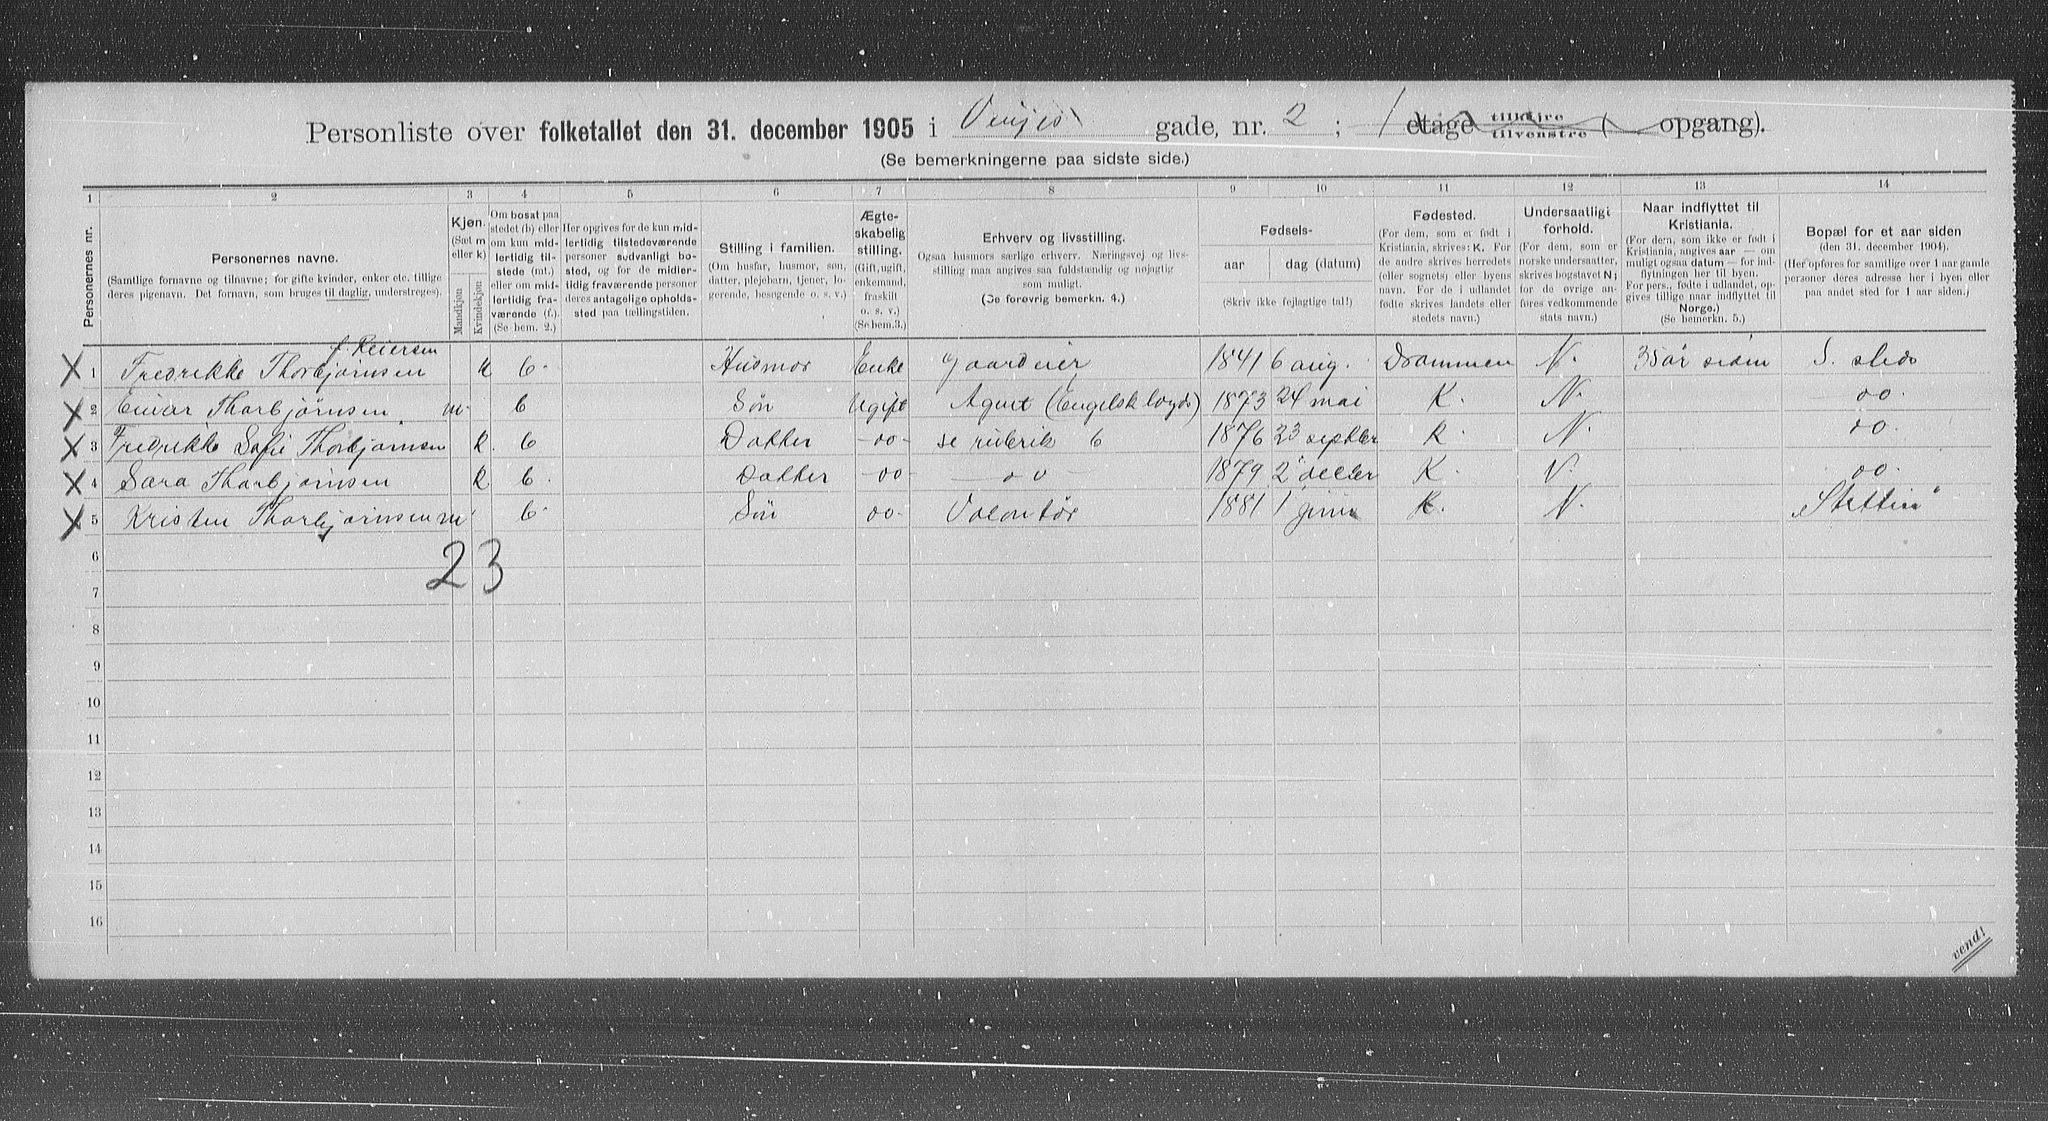 Personliste over folketallet den 31. december 1905 i gade, nr. 2 ; 1 etage tilhøjre tilvenstre ( opgang).
(Se bemerkningerne paa sidste side.)
1 2 3 4 5 6 7 8 9 10 11 12 13 14
Personernes nr.
Personernes navne.
(Samtlige fornavne og tilnavne; for gifte kvinder, enker etc. tillige
deres pigenavn. Det fornavn, som bruges til daglig, understreges).
Kjøn.
(Sæt m
eller k)
Mandkjøn
Kvindekjøn
Om bosat paa
stedet (b) eller
om kun mid-
lertidig til-
stede (mt.)
eller om mid-
lertidig fra-
værende (f.)
(Se bem. 2.)
Her opgives for de kun mid-
lertidig tilstedeværende
personer sudvanligt bo-
sted, og for de midler-
tidig fraværende personer
deres antagelige opholds-
sted paa tællingstiden.
Stilling i familien.
(Om husfar, husmor, søn,
datter, plejebarn, tjener, lo-
gerende, besøgende o. s. v.)
Ægte-
skabelig
stilling.
(Gift, ugift,
enkemand,
fraskilt
o. s. v.)
(Se bem. 3.)
Erhverv og livsstilling.
Ogsaa husmors særlige erhverv. Næringsvej og livs-
stilling maa angives saa fuldstændig og nøjagtig
som muligt.
(Se forøvrig bemerkn. 4.)
Fødsels-
aar dag (datum)
(Skriv ikke fejlagtige tal!)
Fødested.
(For dem, som er født i
Kristiania, skrives: K. For
de andre skrives herredets
(eller sognets) eller byens
navn. For de i udlandet
fødte skrives landets eller
stedets navn.)
Undersaatligt
forhold.
(For dem, som er
norske undersaatter,
skrives bogstavet N;
for de øvrige an-
føres vedkommende
stats navn.)
Naar indflyttet til
Kristiania.
(For dem, som ikke er født i
Kristiania, angives aar — om
muligt ogsaa datum — for ind-
flytningen her til byen.
For pers., fødte i udlandet, op-
gives tillige naar indflyttet til
Norge.)
(Se bemerkn. 5.)
Bopæl for et aar siden
(den 31. december 1904).
(Her opføres for samtlige over 1 aar gamle
personer deres adresse her i byen eller
paa andet sted for 1 aar siden.)
f. Reiersen
X 1 Fredrikke Thorbjørnsen K b. Husmor Enke gaardeier 1841 6 aug. Drammen N. 35 år siden S. sted
X 2 Einar Thorbjørnsen m. b Søn Ugift Agent (Engelsk loyds) 1873 24 mai K. N. oo.
X 3 Fredrikke Sofie Thorbjørnsen K. b Datter -oo- se rubrik 6 1876 23 septber K. N. oo.
X 4 Sara Thorbjørnsen K b. Datter -oo- oo 1879 2 decber K. N. oo.
X 5 Kristen Thorbjørnsen m b. Søn oo. Volontør 1881 1 juni K. N. „Stettin"
2 3
6
7
8
9
10
11
12
13
14
15
16
vend!